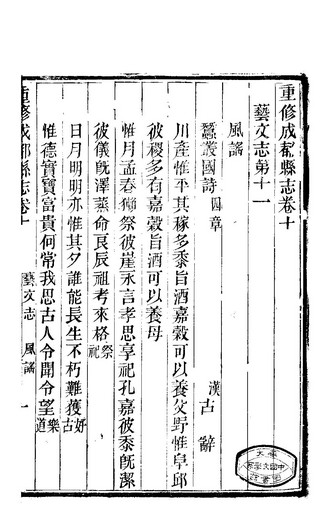 重修成都縣志卷十
藝文志第十一
風謠
蠶叢國詩四章 漢古辭
川產惟平其稼多黍旨酒嘉穀可以養父野惟阜邱
彼稷多有嘉穀旨酒可以養母
惟月孟春獺祭彼崖永言孝思享祀孔嘉彼黍旣潔
彼儀旣澤蒸命良辰祖考來格祭祀
日月明明亦惟其夕誰能長生不朽難獲好古
惟德實寶富貴何常我思古人令聞令望樂道
重修成都縣志卷十
藝文志 風謠 一